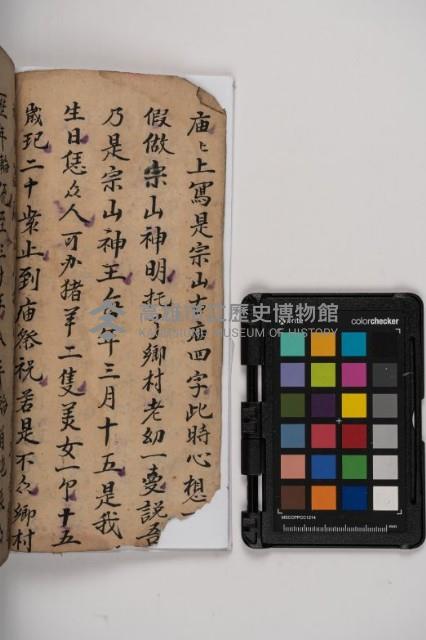 庙上寫是宗山古庙四字此時心想
假做宗山神明托夕鄉村老幼一夢説吾
乃是宗山神王在年三月十五是我
生日恁众人可办猪羊二隻美女一个十五
歲玘二十衆止到庙祭祝若是不众鄉村
高雄市立歷史博物館
KAOHSIUNG MUSEUM OF HISTORY
x-rite
colorchecker
MSCCPPCC1214